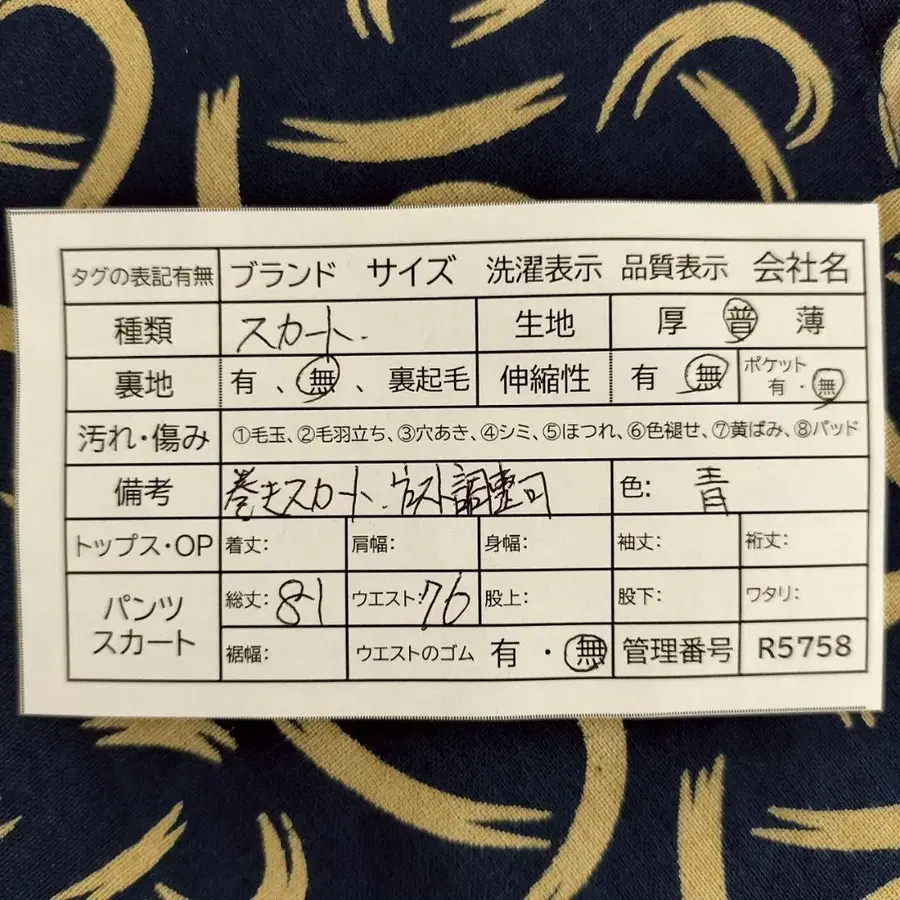 タグの表記有無 ブランド サイズ 洗濯表示 品質表示 会社名
種類 スカート. 生地 厚 普 薄
裏地 有 、 無 、 裏起毛 伸縮性 有 無 ポケット 有 ・ 無
汚れ・傷み ①毛玉、②毛羽立ち、③穴あき、④シミ、⑤ほつれ、⑥色褪せ、⑦黄ばみ、⑧パッド
備考 巻きスカート. ウエスト調整可 色: 青
トップス・OP 着丈: 肩幅: 身幅: 袖丈: 裄丈:
パンツ スカート 総丈: 81 ウエスト: 76 股上: 股下: ワタリ:
裾幅: ウエストのゴム 有 ・ 無 管理番号 R5758